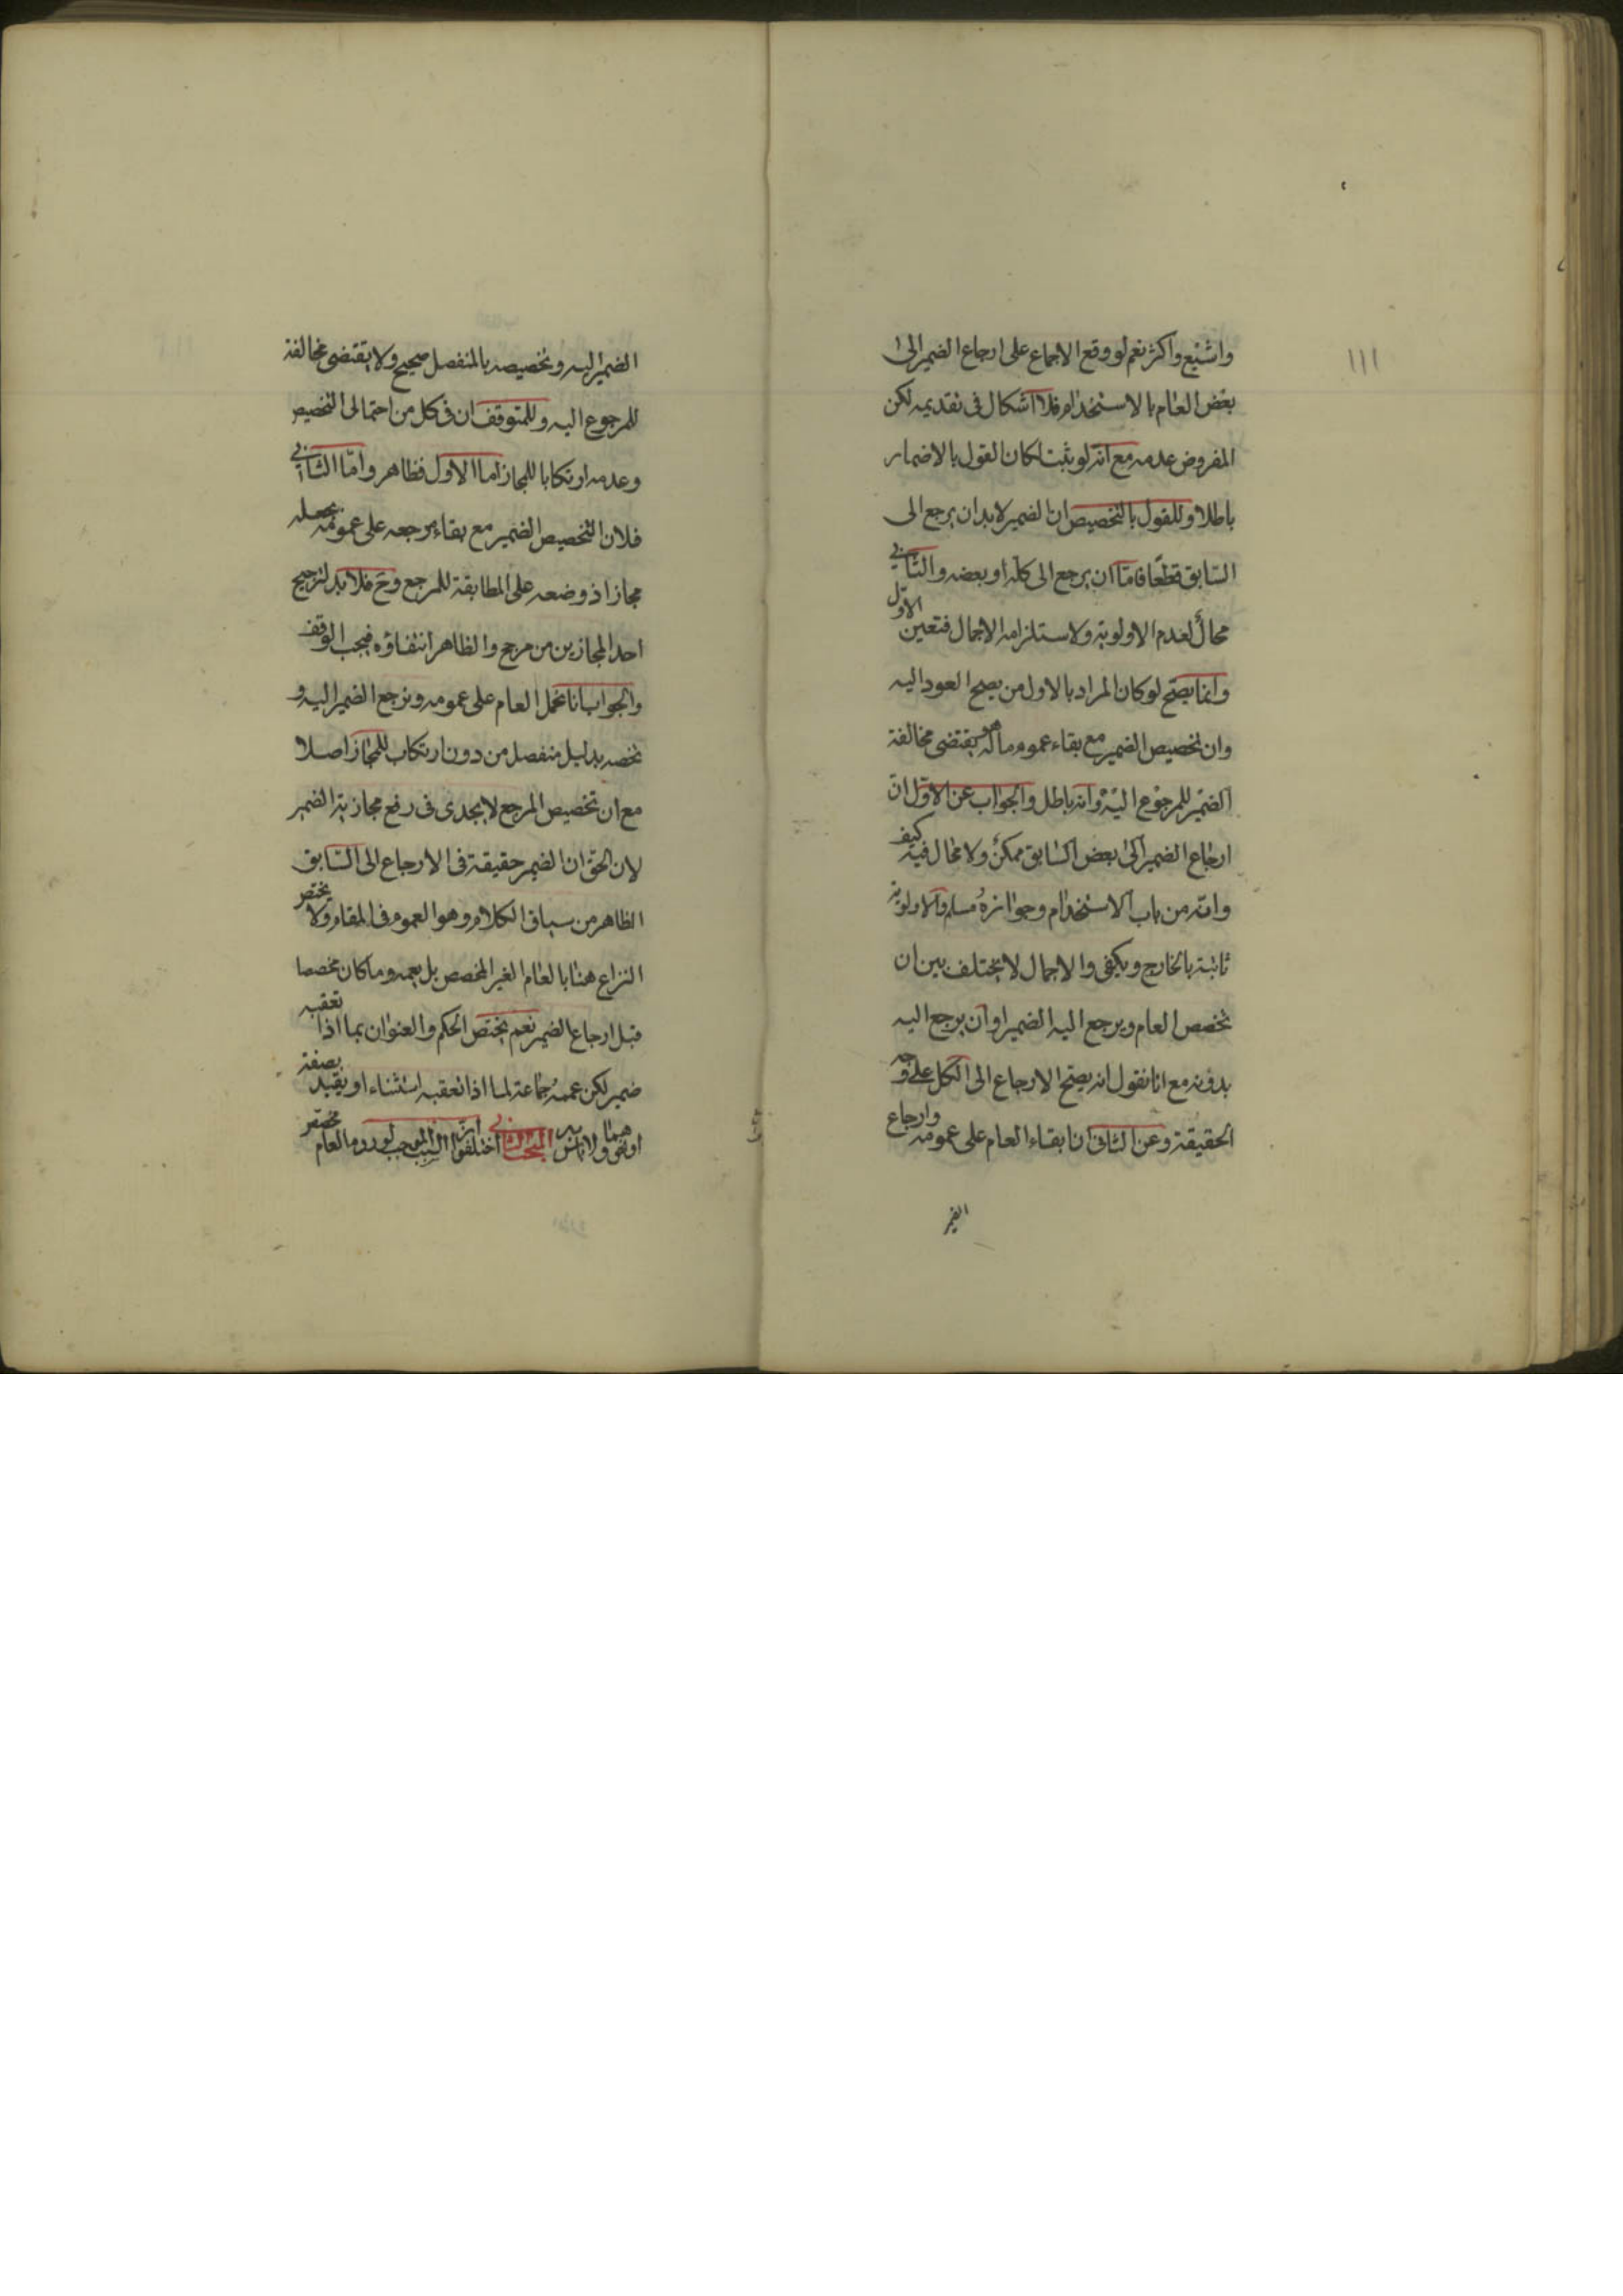 ١١١
واشيع واكثر نعم لو وقع الاجماع على ارجاع الضمير الى
بعض العام بالاستخدام فلا اشكال فى تقديمه لكن
المفروض عدمه مع انه لو ثبت لكان القول بالاضمار
باطلا وللقول بالتخصيص ان الضمير لا بد ان يرجع الى
السابق قطعا فاما ان يرجع الى كله او بعضه والثانى
محال لعدم الاولوية ولاستلزامه الاجمال فتعين الاول
وانما يصح لو كان المراد بالاول من يصح العود اليه
وان تخصيص الضمير مع بقاء عموم ماله يقتضى مخالفة
الضمير للمرجوع اليه وانه باطل والجواب عن الاول ان
ارجاع الضمير الى بعض السابق ممكن ولا محال فيه كيف
وانه من باب الاستخدام وجوازه مسلم والاولوية
ثابتة بالخارج ويكفى والاجمال لا يختلف بين ان
تخصص العام ويرجع اليه الضمير او ان يرجع اليه
بدونه مع انا نقول انه يصح الارجاع الى الكل على وجه
الحقيقة وعن الثانى ان ابقاء العام على عمومه وارجاع
الضمير
الضمير اليه وتخصيصه بالمنفصل صحيح ولا يقتضى مخالفة
للمرجوع اليه وللمتوقف ان فى كل من احتمالى التخصيص
وعدمه ارتكابا للمجاز اما الاول فظاهر واما الثانى
فلان التخصيص الضمير مع بقاء مرجعه على عمومه يجعله
مجازا اذ وضعه على المطابقة للمرجع وح فلا بد لترجيح
احد المجازين من مرجح والظاهر انتفاؤه فيجب الوقف
والجواب انا نحمل العام على عمومه ونرجع الضمير اليه و
نخصه بدليل منفصل من دون ارتكاب للمجاز اصلا
مع ان تخصيص المرجع لا يجدى فى رفع مجازية الضمير
لان الحق ان الضمير حقيقة فى الارجاع الى السابق
الظاهر من سياق الكلام وهو العموم فى المقام ولا يختص
النزاع هنا بالعام الغير المخصص بل يعمه وما كان مخصصا
قبل ارجاع الضمير نعم يختص الحكم والعنوان بما اذا تعقبه
ضمير لكن عممه جماعة لما اذا تعقبه استثناء او يقيد بصفة
او نحوهما ولا باس به البحث الثانى اختلفوا فى ان السبب الموجب لورود العام